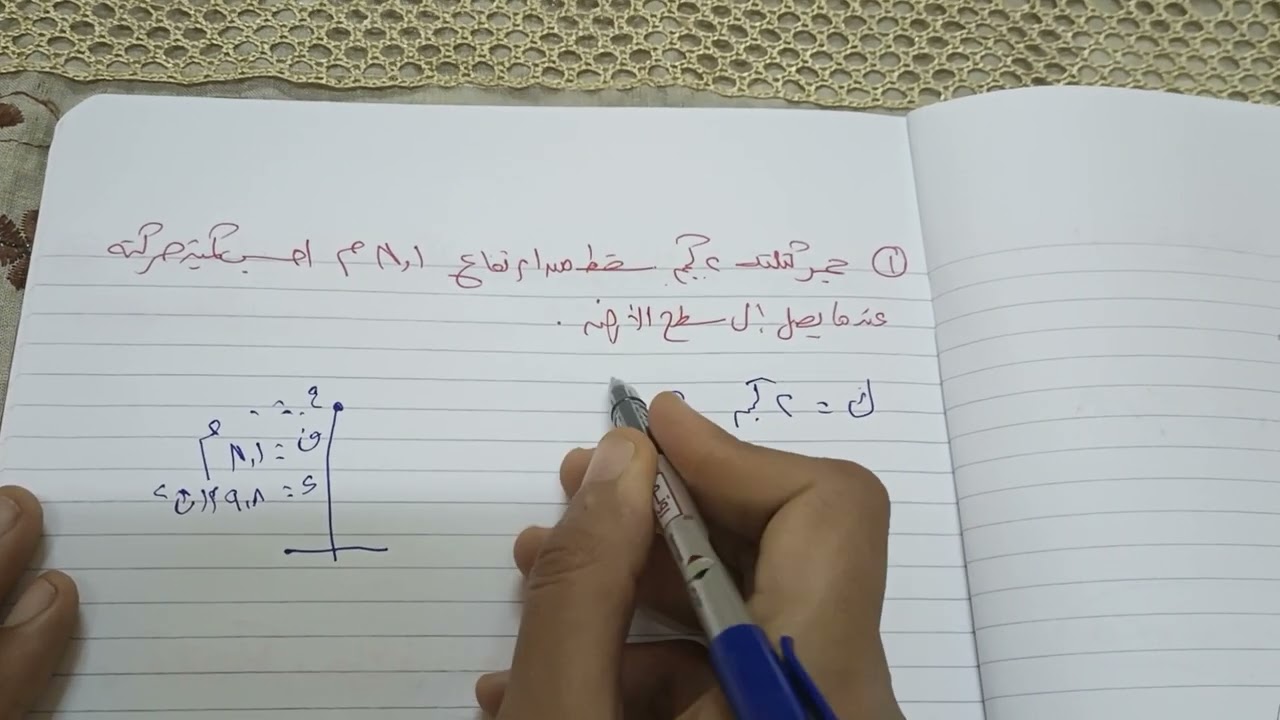 ① حجر كتلته ٢ كجم سقط من ارتفاع ١,٨ م احسب كمية حركته
عندما يصل إلى سطح الأرض .
ك = ٢ كجم
ع. = ٠
ف = ١,٨ م
ء = ٩,٨ م/ث٢
روتو